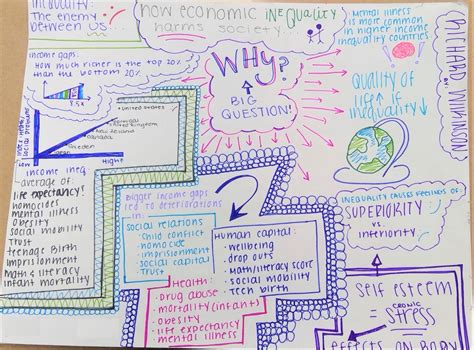 INEQUALITY:
THE ENEMY
BETWEEN US
HOW ECONOMIC INEQUALITY
HARMS SOCIETY.
Mental illness
is more common
in higher income
inequality countries
RICHARD WILKINSON
INCOME GAPS:
HOW MUCH RICHER IS THE TOP 20%
THAN THE BOTTOM 20%
8.5x
WHY?
BIG
QUESTION!
QUALITY OF
LIFE IF
INEQUALITY
United States
United Kingdom
New Zealand
Canada
Sweden
High
INCOME INEQ
-average OF
life expectancy!
homocides
mental illness
obesity
social mobility
Trust
teenage Birth
Imprisonment
Math & literacy
infant mortality
Bigger income gaps
led to deteriorations
in:
SOCIAL RELATIONS
• Child conflict
• homocide
• imprisonment
• social capital
Trust
Human Capital:
• wellbeing
• drop outs
• Math/literacy score
• Social mobility
• Teen birth
Health:
• Drug abuse
• mortality (infant)
• obesity
• life expectancy
• mental illness
INEQUALITY CAUSES FEELINGS OF:
SUPERIORITY
VS
INFERIORITY.
Self esteem
CRONIC
= STRESS
effects ON BODY